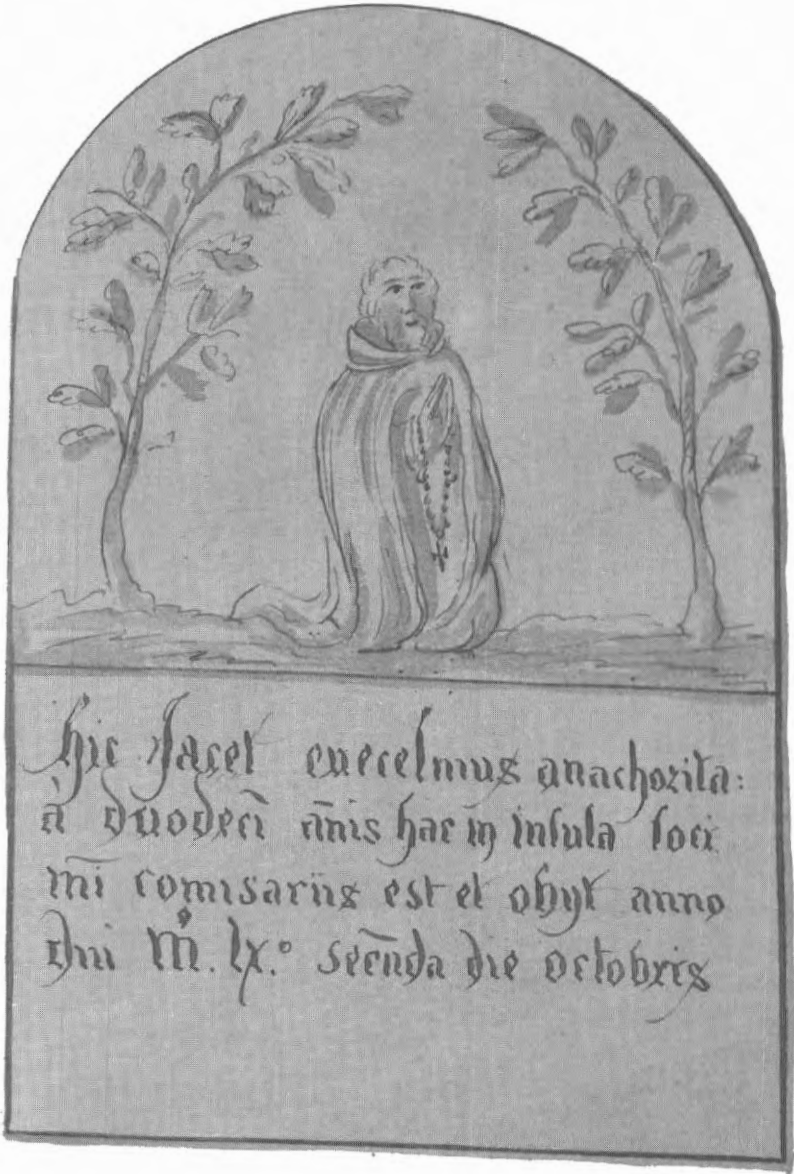 hic Jacet euecelmus anachorita:
à duodecī ānis hac in insula soci
mī comisariis est et obyt anno
dni M°. lx.° secūda die octobris